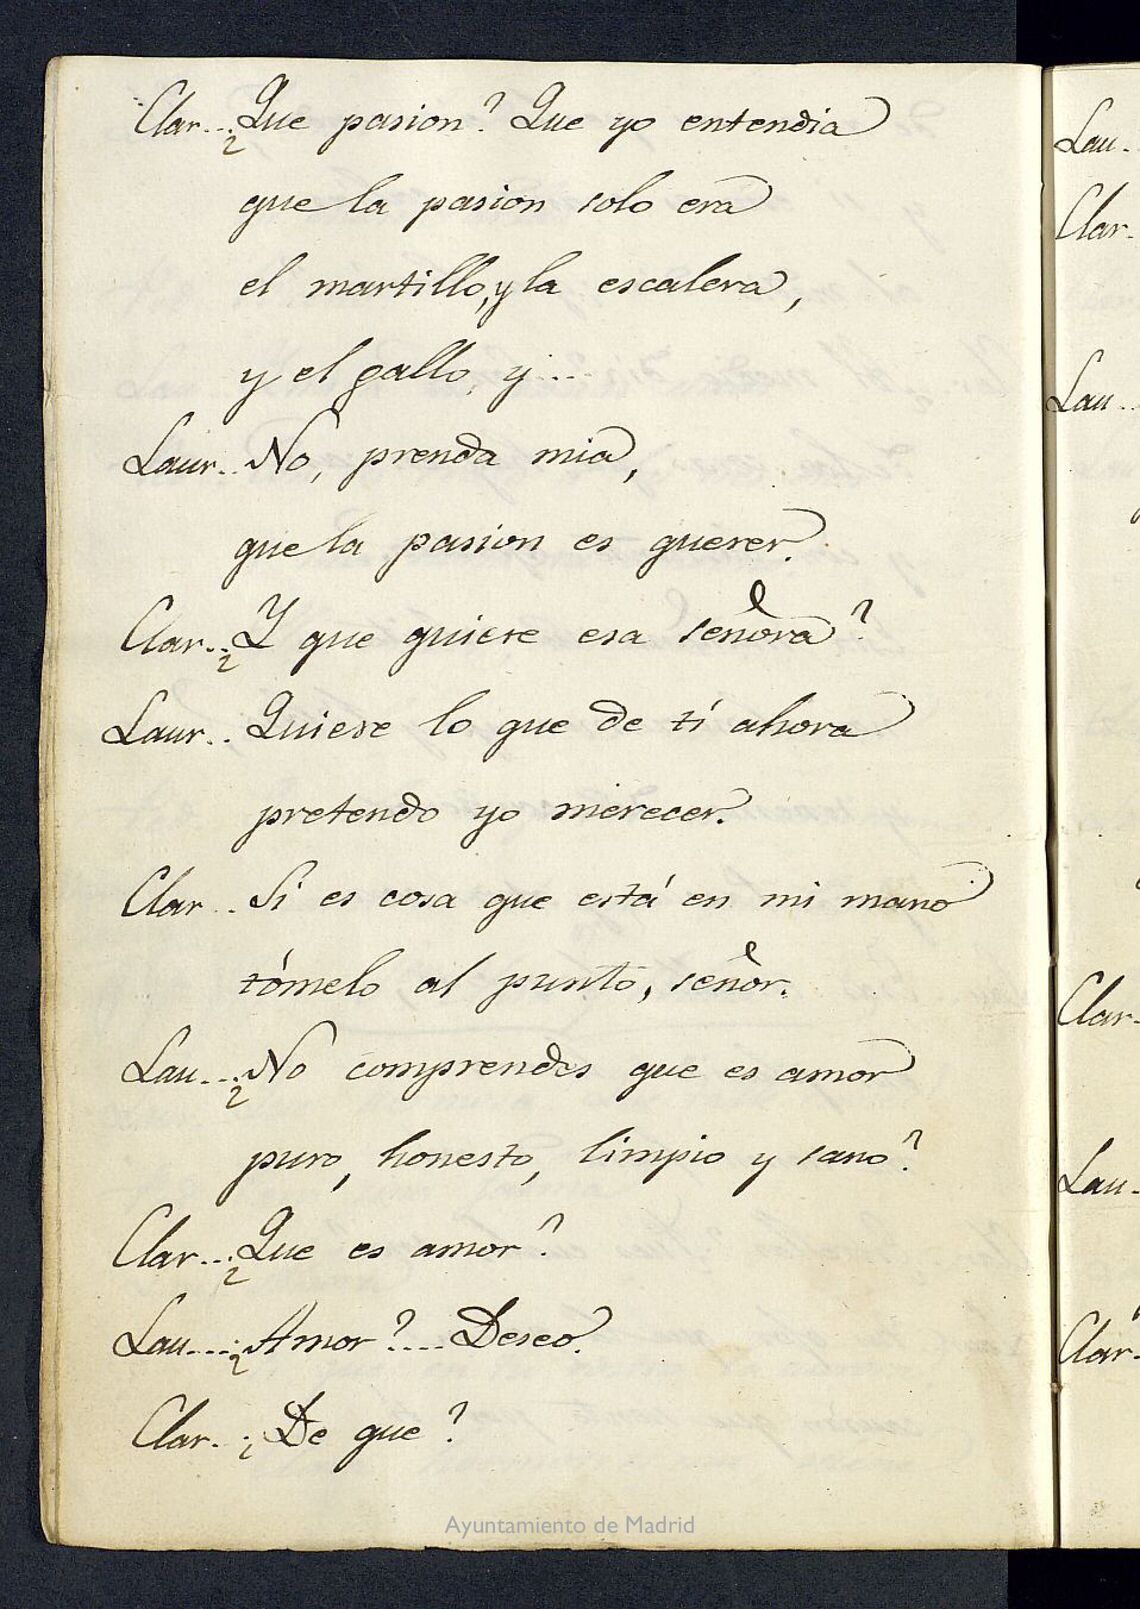 Clar... ¿Que pasion? Que yo entendia
que la pasion solo era
el martillo, y la escalera,
y el gallo, y...
Laur.. No, prenda mia,
que la pasion es querer.
Clar.. ¿Y que quiere esa señora?
Laur.. Quiere lo que de tí ahora
pretendo yo merecer.
Clar.. Si es cosa que está en mi mano
tómelo al punto, señor.
Lau... ¿No comprendes que es amor
puro, honesto, limpio y sano?
Clar... ¿Que es amor?
Lau.... ¿Amor?.... Deseo.
Clar. ¿De que?
Ayuntamiento de Madrid
Lau.
Clar.
Lau..
Clar.
Lau.
Clar.